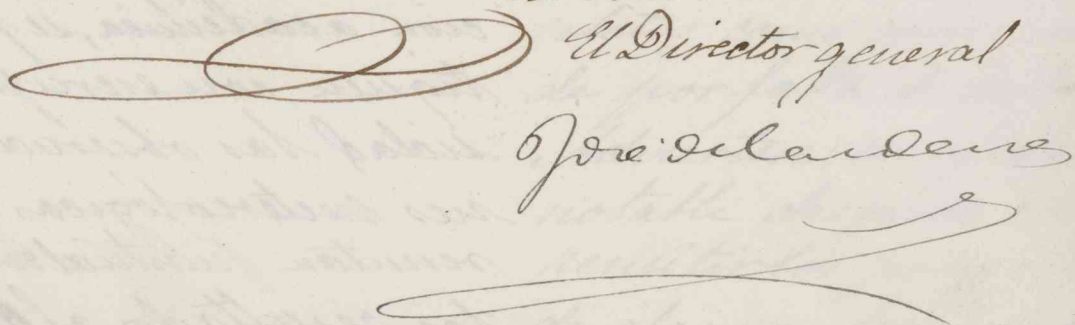 El Director general
José de Cardenas